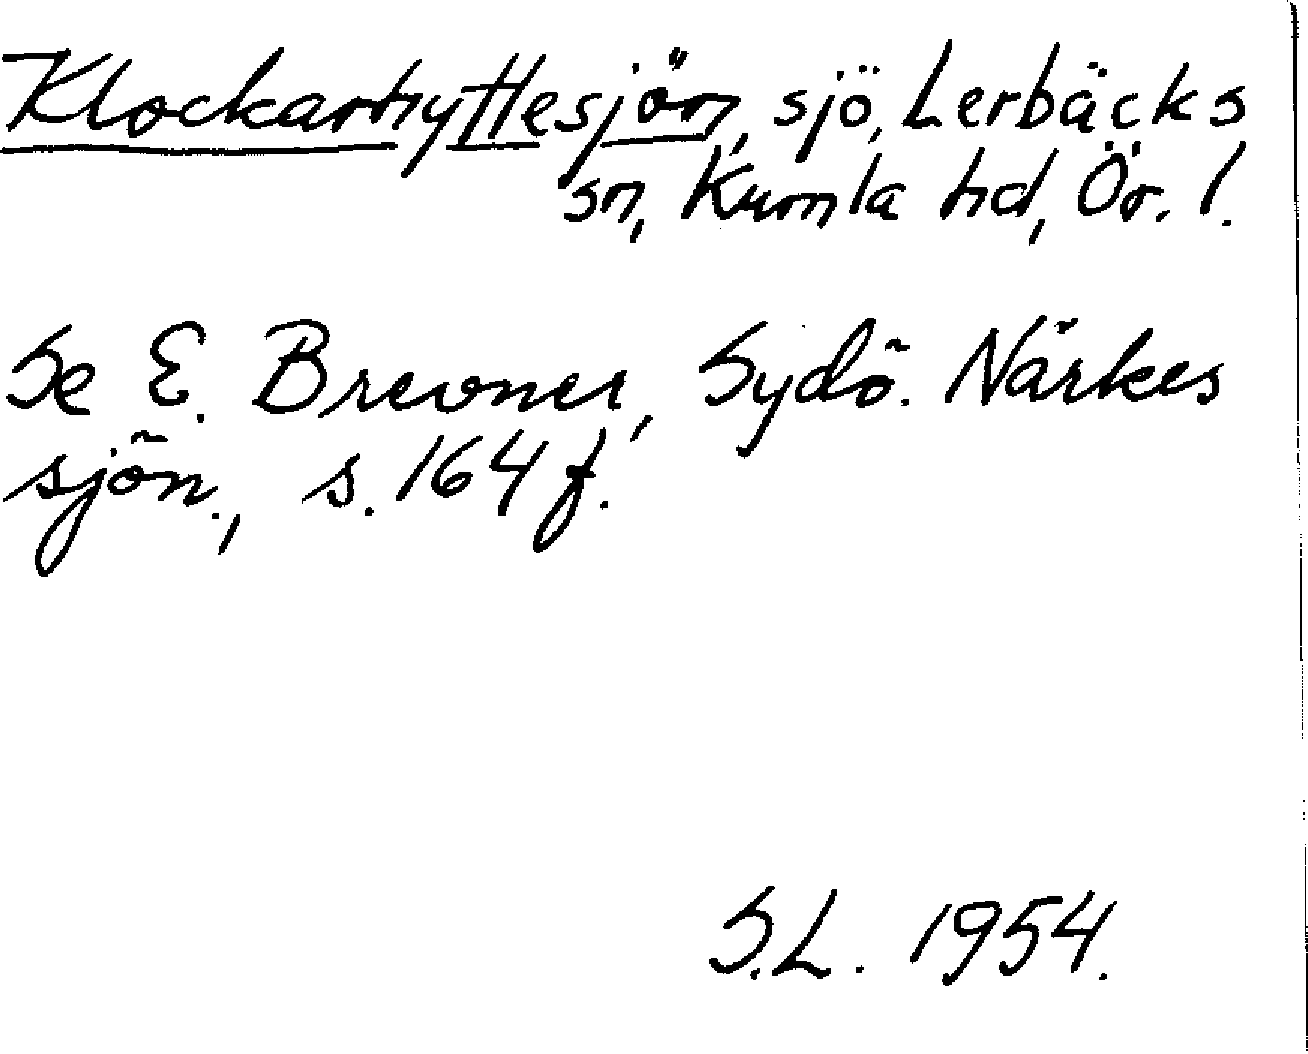 Klockarhyttesjön, sjö, Lerbäcks
sn, Kumla hd, Ör. l.
Se E. Brevner, Sydö. Närkes
sjön., s. 164 f.
S.L. 1954.